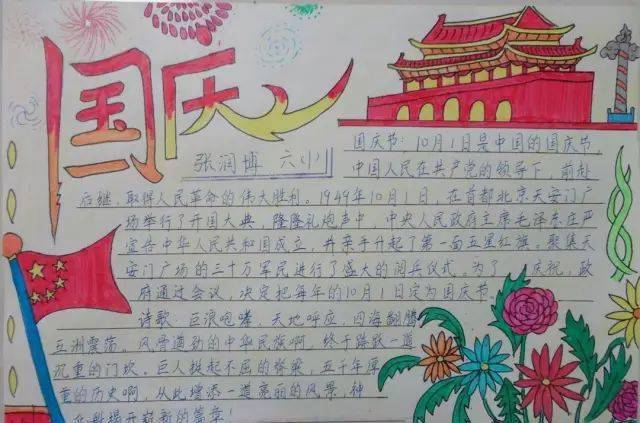 国庆
张润博 六(1)
国庆节：10月1日是中国的国庆节，
中国人民在共产党的领导下，前赴
后继，取得人民革命的伟大胜利。1949年10月1日，在首都北京天安门广
场举行了开国大典，隆隆礼炮声中，中央人民政府主席毛泽东庄严
宣告中华人民共和国成立，并亲手升起了第一面五星红旗。聚集天
安门广场的三十万军民进行了盛大的阅兵仪式。为了 庆祝，政
府通过会议，决定把每年的10月1日定为国庆节
诗歌：巨浪咆哮，天地呼应，四海翻腾
五洲震荡。风骨遒劲的中华民族啊，终于踏跃一道
沉重的门坎。巨人挺起不屈的脊梁，五千年厚
重的历史啊，从此增添一道亮丽的风景，神
揭开崭新的篇章！